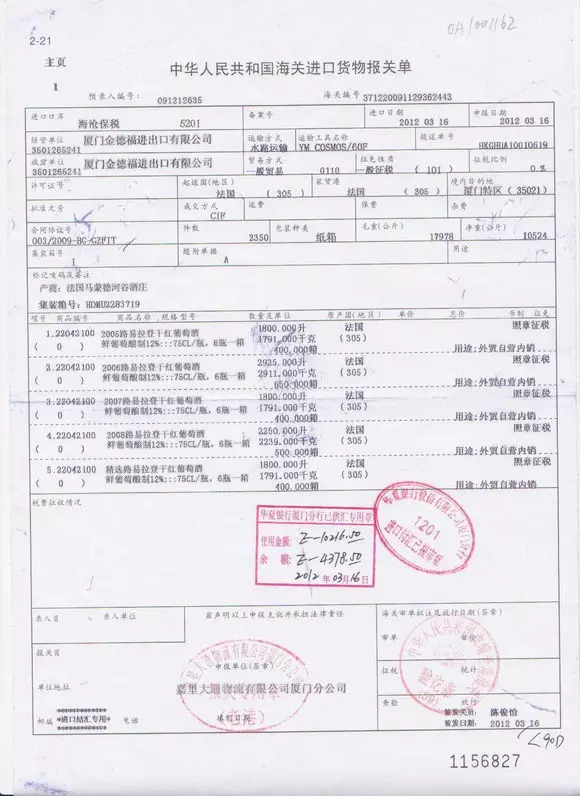 OA1001162
2-21
主页
1
中华人民共和国海关进口货物报关单
预录入编号: 091212635 海关编号 371220091129362443
进口口岸 海沧保税 5201 备案号 进口日期 2012 03 16 申报日期 2012 03 16
经营单位 厦门金德福进出口有限公司 3501265241 运输方式 水路运输 运输工具名称 YM COSMOS/60F 提运单号 HKGHUA10010619
收货单位 厦门金德福进出口有限公司 3501265241 贸易方式 一般贸易 0110 征免性质 一般征税 ( 101 ) 征税比例 0.%
许可证号 起运国(地区) 法国 ( 305 ) 装货港 法国 ( 305 ) 境内目的地 厦门特区 ( 35021)
批准文号 成交方式 CIF 运费 保费 杂费
合同协议号 003/2009-BG-GZFIT 件数 2350 包装种类 纸箱 毛重(公斤) 17978 净重(公斤) 10524
集装箱号 1 随附单据 A 用途
标记唛码及备注
产商: 法国马蒙德河谷酒庄
集装箱号: HDMU2283719
项号 商品编号 商品名称、规格型号 数量及单位 原产国(地区) 单价 总价 币制 征免
1.22042100 2005路易拉登干红葡萄酒 1800.000升 法国 照章征税
( 0 ) 鲜葡萄酿制12%:::75CL/瓶, 6瓶一箱 1791.000千克 (305)
400.000箱 用途:外贸自营内销
2.22042100 2006路易拉登干红葡萄酒 2925.000升 法国 照章征税
( 0 ) 鲜葡萄酿制12%:::75CL/瓶, 6瓶一箱 2911.000千克 (305)
650.000箱 用途:外贸自营内销
3.22042100 2007路易拉登干红葡萄酒 1800.000升 法国 照章征税
( 0 ) 鲜葡萄酿制12%:::75CL/瓶, 6瓶一箱 1791.000千克 (305)
400.000箱 用途:外贸自营内销
4.22042100 2008路易拉登干红葡萄酒 2250.000升 法国 照章征税
( 0 ) 鲜葡萄酿制12%:::75CL/瓶, 6瓶一箱 2239.000千克 (305)
500.000箱 用途:外贸自营内销
5.22042100 精选路易拉登干红葡萄酒 1800.000升 法国 照章征税
( 0 ) 鲜葡萄酿制12%:::75CL/瓶, 6瓶一箱 1791.000千克 (305)
400.000箱 用途:外贸自营内销
税费征收情况
华夏银行厦门分行已供汇专用章
使用金额: Z-10216.50
余 额: Z-4378.50
2012 年 03月16日
华夏银行股份有限公司厦门分行
1201
进口付汇已报审核
录入员 录入单位 兹声明以上申报无讹并承担法律责任 海关审单批注及放行日期(签章)
审单 审价
报关员
申报单位(签章)
征税 统计
中华人民共和国
验讫章
单位地址 嘉里大通物流有限公司厦门分公司
查验 放行
邮编 *进口结汇专用* 电话 填制日期
签发关员: 陈俊怡
签发日期: 2012 03 16
L90D
1156827